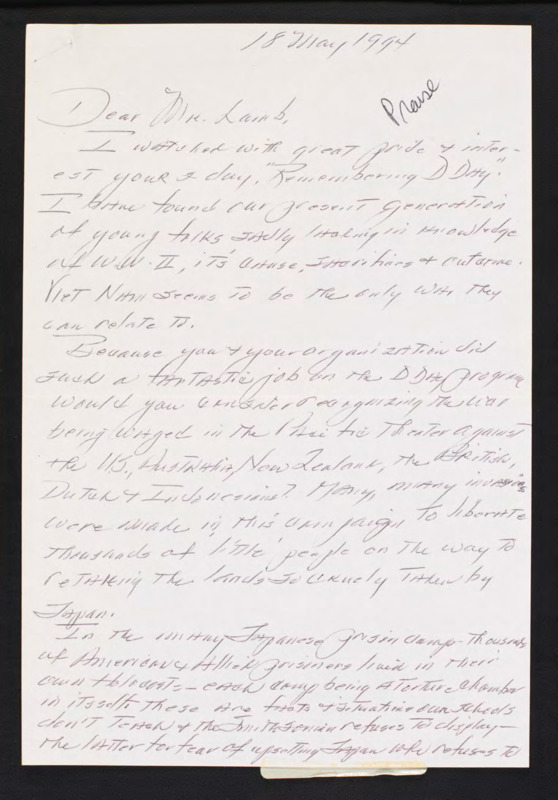 18 May 1994
Praise
Dear Mr. Lamb,
I watched with great pride & inter-
est your 2 day, "Remembering D DAY".
I have found our present generation
of young folks sadly lacking in knowledge
of W.W. II, it's cause, sacrifices & outcome.
Viet Nam seems to be the only war they
can relate to.
Because you & your organization did
such a fantastic job on the D DAY program
would you consider recognizing the war
being waged in the Pacific Theater against
the U.S., Australia, New Zealand, the British,
Dutch & Indonesians? Many, many invasions
were made in this campaign to liberate
thousands of little people on the way to
retaking the lands so cruely taken by
Japan.
In the many Japanese prison camps thousands
of Americans & Allied prisoners lived in their
own Holocosts - each camp being a torture chamber
in itself. These are facts & situations our schools
don't teach & the Smithsonian refuses to display -
the latter for fear of upsetting Japan who refuses to